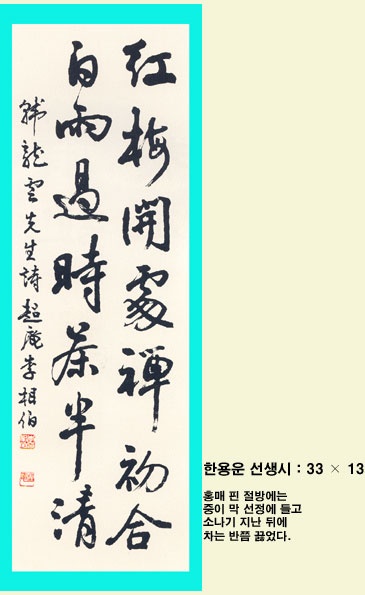 紅梅開處禪初合
白雨過時茶半清
韓龍雲先生詩 超庵 李相伯
한용운 선생시 : 33 × 13
홍매 핀 절방에는
중이 막 선정에 들고
소나기 지난 뒤에
차는 반쯤 끓었다.